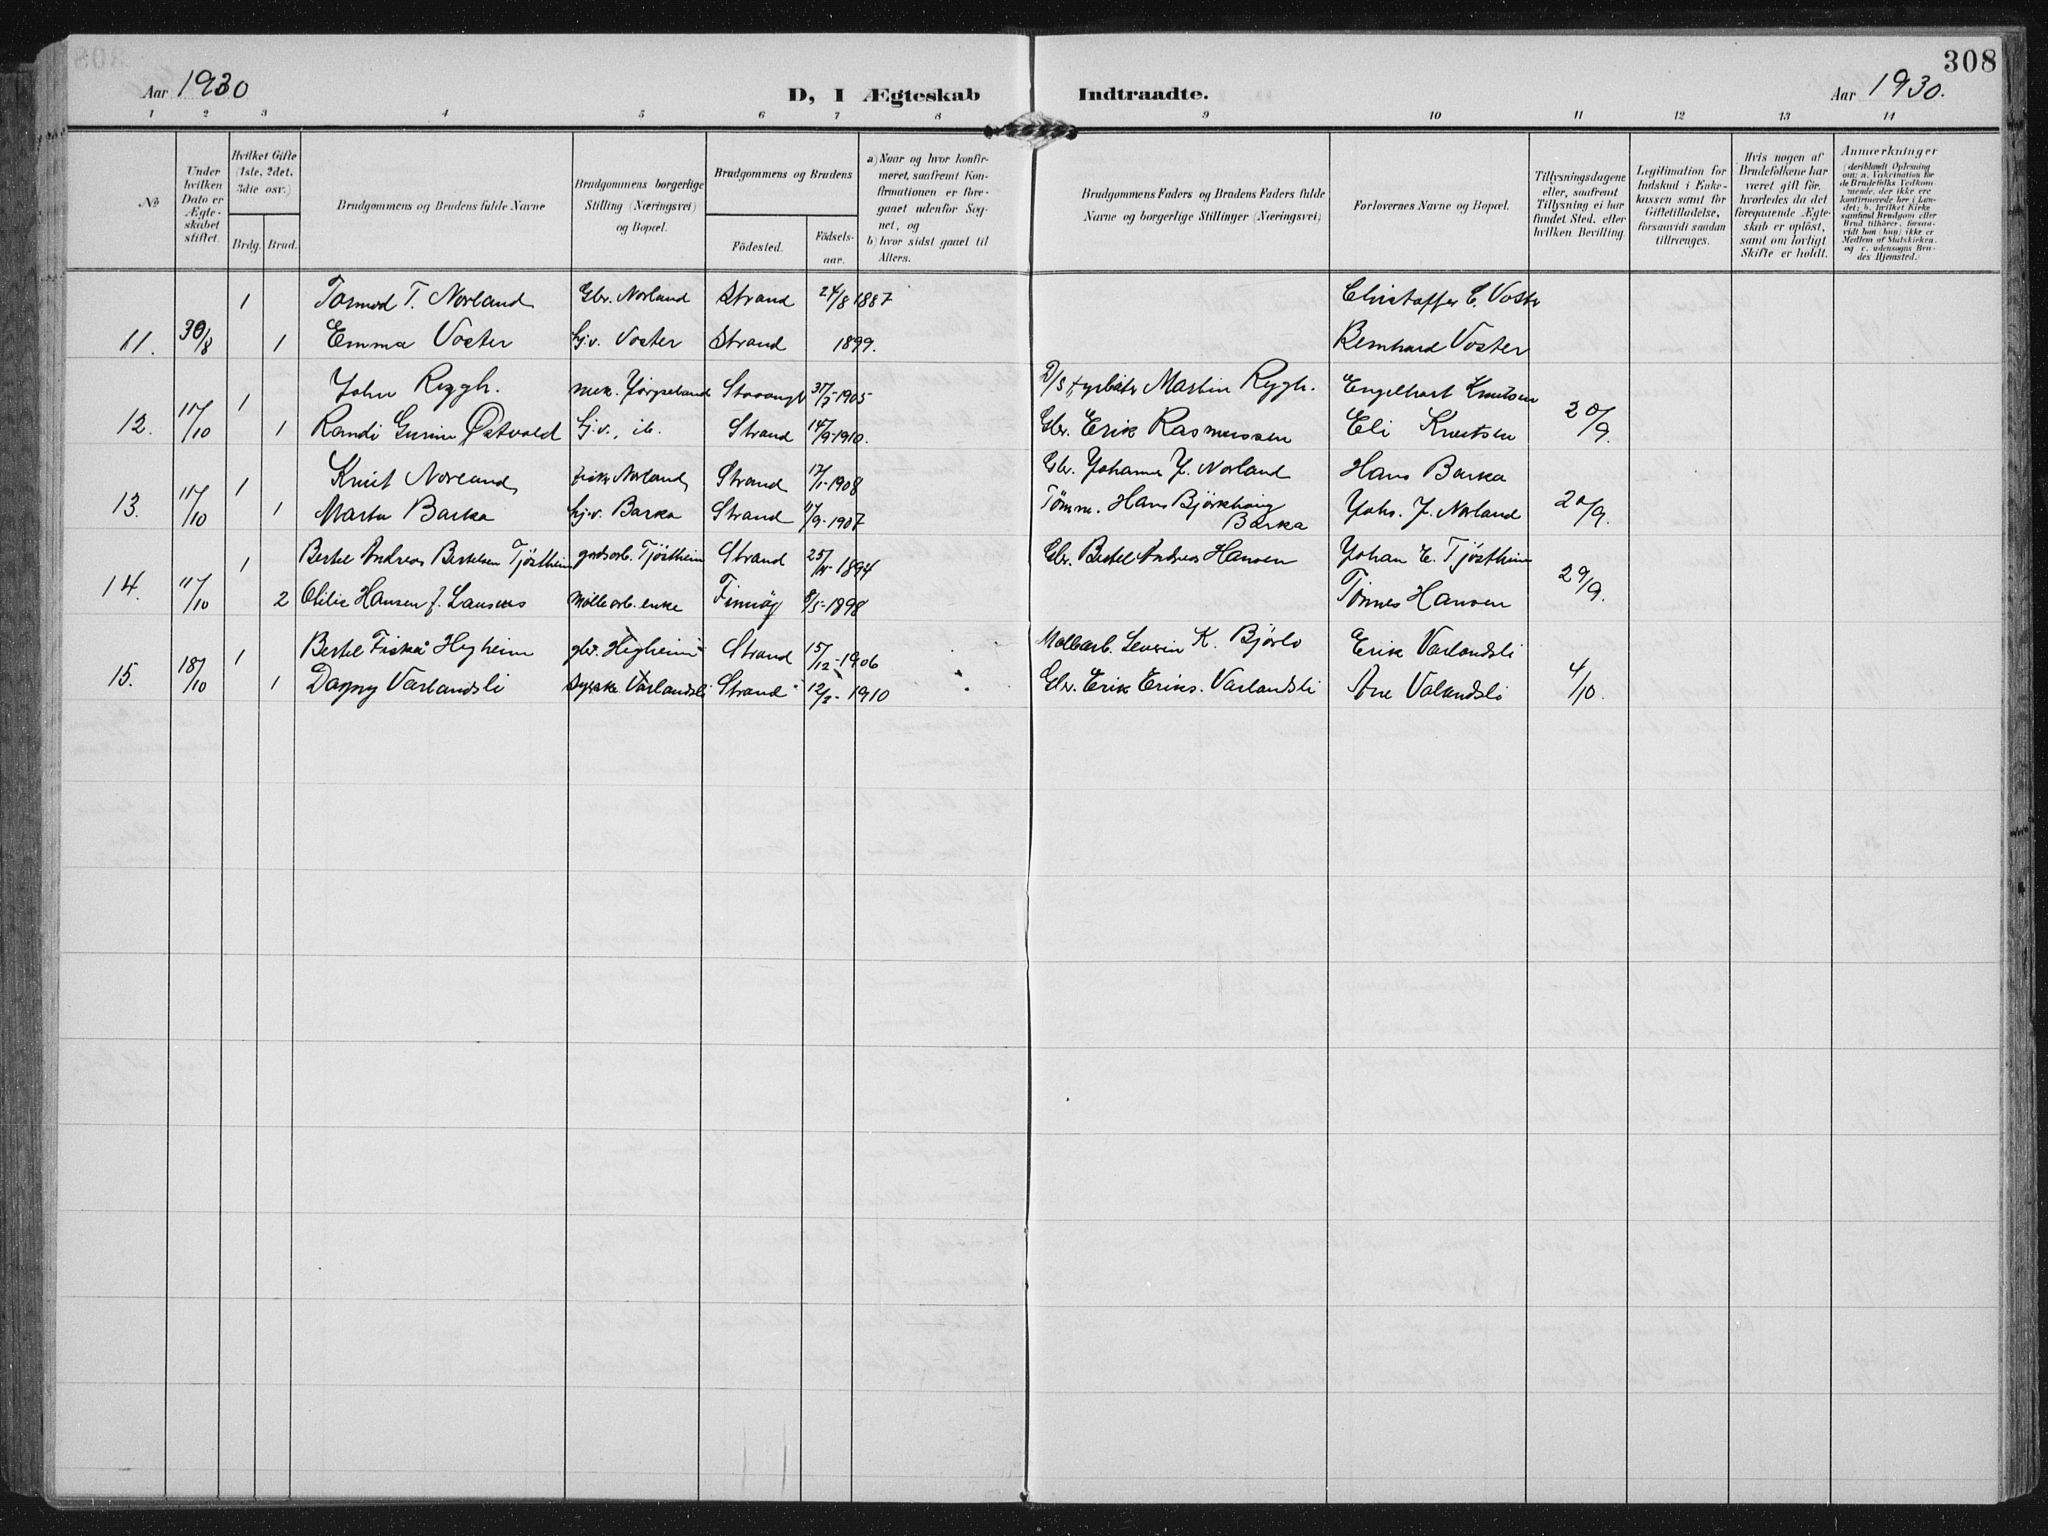 308
Aar 1930
D, I Ægteskab Indtraadte.
Aar 1930.
1 2 3 4 5 6 7 8 9 10 11 12 13 14
No
Under hvilken Dato er Ægteskabet stiftet.
Hvilket Gifte (1ste, 2det, 3die osv.)
Brdg. Brud.
Brudgommens og Brudens fulde Navne
Brudgommens borgerlige Stilling (Næringsvei) og Bopæl.
Brudgommens og Brudens
Födested. Födselsaar.
a) Naar og hvor konfirmeret, saafremt Konfirmationen er foregaaet udenfor Sognet, og
b) hvor sidst gaaet til Alters.
Brudgommens Faders og Brudens Faders fulde Navne og borgerlige Stillinger (Næringsvei)
Forlovernes Navne og Bopæl.
Tillysningsdagene eller, saafremt Tillysning ei har fundet Sted, efter hvilken Bevilling
Legitimation for Indskud i Enkekassen samt for Giftetilladelse, forsaavidt saadan tiltrænges.
Hvis nogen af Brudefolkene har været gift för, hvorledes da det foregaaende Ægteskab er oplöst, samt om lovligt Skifte er holdt.
Anmærkninger (deriblandt Oplysning om: a. Vakcination for de Brudefolks Vedkommende, der ikke ere konfirmerede her i Landet; b. hvilket Kirkesamfund Brudgom eller Brud tilhører, forsaavidt han (hun) ikke er Medlem af Statskirken, og c. udensogns Brudes Hjemsted.)
1 Tormod T. Norland Gbr. Norland Strand 24/8 1887 Christoffer C. Voster
11. 30/8 1 Emma Voster hj.v. Voster Strand 1899. Bernhard Voster
1 John Rygh. mek. Jörpeland Stavanger 31/5-1905 D/S Martin Rygh. Engelhart Knutsen
12. 11/10 1 Randi Gurine Østvold hj.v., ib. Strand 14/9-1910. Gbr. Erik Rasmussen Eli Knutsen 20/9.
1 Knut Norland fisker Norland Strand 17/1-1908 Gbr. Johannes J. Norland Hans Barka
13. 11/10 1 Marta Barka hj.v. Barka Strand 11/9-1907 Tømm. Hans Björkhaug Barka Johs. J. Norland 20/9.
1 Bertel Andreas Bertelsen Tjöstheim gårdsarb. Tjöstheim Strand 25/11-1894 Gbr. Bertel Andreas Hansen Johan E. Tjöstheim
14. 11/10 2 Otilie Hansen f. Mölle arb. enke Finnöy 8/5-1898 Tønnes Hansen 29/9.
1 Bertel Fiskå Hegheim gbr. Hegheim Strand 15/12-1906 Mölbarb. Severin K. Björlo Erik Varlandsli
15. 18/10 1 Dagny Varlandsli syerske Varlandsli Strand 12/3-1910 Gbr. Erik Eriks. Varlandsli Ane Valandsli 4/10.